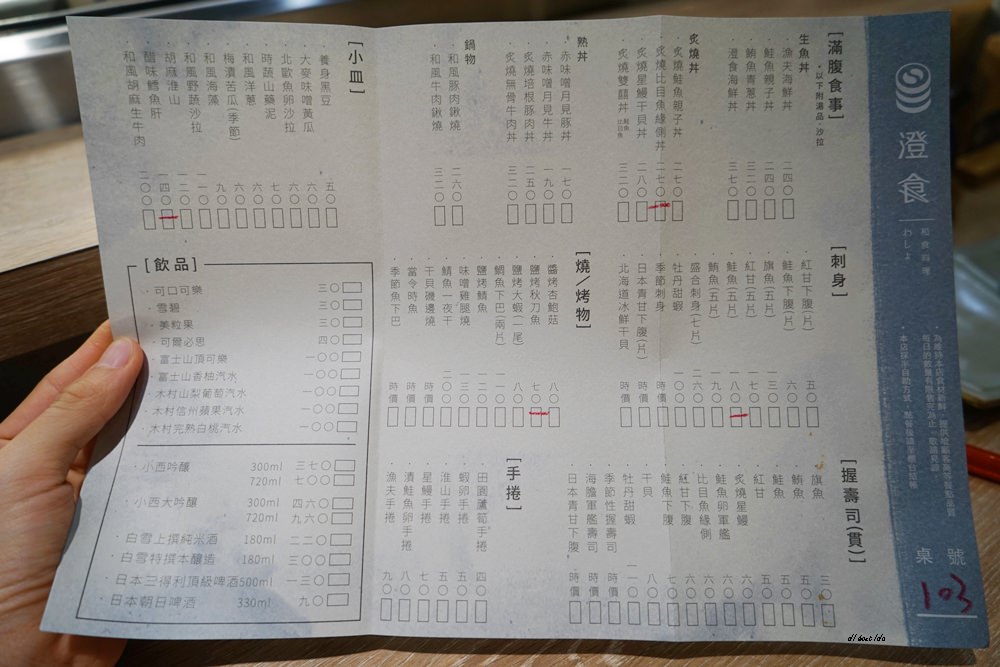 澄食
和食料理
わしょ
桌號
103
[滿腹食事]
·以下附湯品·沙拉
生魚丼
·漁夫海鮮丼 二四〇
·鮭魚親子丼 二四〇
·鮪魚青蔥丼 三二〇
·澄食海鮮丼 三七〇
炙燒丼
·炙燒鮭魚親子丼 二七〇
·炙燒比目魚緣側丼 二七〇
·炙燒星鰻干貝丼 二八〇
·炙燒雙囍丼 鮭魚 比目魚 三二〇
熟丼
·赤味噌月見豚丼 一七〇
·赤味噌月見牛丼 一九〇
·炙燒培根豚肉丼 二五〇
·炙燒無骨牛肉丼 三二〇
鍋物
·和風豚肉鍬燒 二六〇
·和風牛肉鍬燒 三二〇
[小皿]
·養身黑豆 五〇
·大麥味噌黃瓜 六〇
·北歐魚卵沙拉 六〇
·時蔬山藥泥 七〇
·和風洋蔥 六〇
·梅漬苦瓜(季節) 六〇
·和風海藻 九〇
·和風野蔬沙拉 一一〇
·胡麻淮山 一二〇
·醋味鱈魚肝 一四〇
·和風胡麻生牛肉 二〇〇
[刺身]
·紅甘下腹(片) 五〇
·鮭魚下腹(片) 六〇
·旗魚(五片) 一三〇
·紅甘(五片) 一五〇
·鮭魚(五片) 一八〇
·鮪魚(五片) 二一〇
·盛合刺身(七片) 二六〇
·牡丹甜蝦 一〇〇
·季節刺身 時價
·日本青甘下腹(片) 時價
·北海道冰鮮干貝 時價
[燒/烤物]
·醬烤杏鮑菇 八〇
·鹽烤秋刀魚 七〇
·鹽烤大蝦(一尾) 八〇
·鯛魚下巴(兩片) 一一〇
·鹽烤鯖魚 一二〇
·味噌雞腿燒 一一〇
·鯖魚一夜干 二〇〇
·干貝磯邊燒 時價
·當令時魚 時價
·季節魚下巴 時價
[握壽司(貫)]
·旗魚 三〇
·鮪魚 五〇
·鮭魚 五〇
·紅甘 五〇
·炙燒星鰻 六〇
·鮭魚卵軍艦 六〇
·比目魚緣側 六〇
·紅甘下腹 六〇
·鮭魚下腹 七〇
·干貝 八〇
·牡丹甜蝦 一一〇
·季節性握壽司 時價
·海膽軍艦壽司 時價
·日本青甘下腹 時價
[手捲]
·田園蘆筍手捲 四〇
·蝦卵手捲 五〇
·淮山手捲 五〇
·星鰻手捲 七〇
·漬鮭魚卵手捲 八〇
·漁夫手捲 九〇
[飲品]
·可口可樂 三〇
·雪碧 三〇
·美粒果 三〇
·可爾必思 四〇
·富士山頂可樂 一〇〇
·富士山香柚汽水 一〇〇
·木村山梨葡萄汽水 一〇〇
·木村信州蘋果汽水 一〇〇
·木村完熟白桃汽水 一〇〇
·小西吟釀 300ml 三七〇
720ml 七〇〇
·小西大吟釀 300ml 四六〇
720ml 九六〇
·白雪上撰純米酒 180ml 二二〇
·白雪特撰本釀造 180ml 三〇〇
·日本三得利頂級啤酒500ml 一三〇
·日本朝日啤酒 330ml 九〇